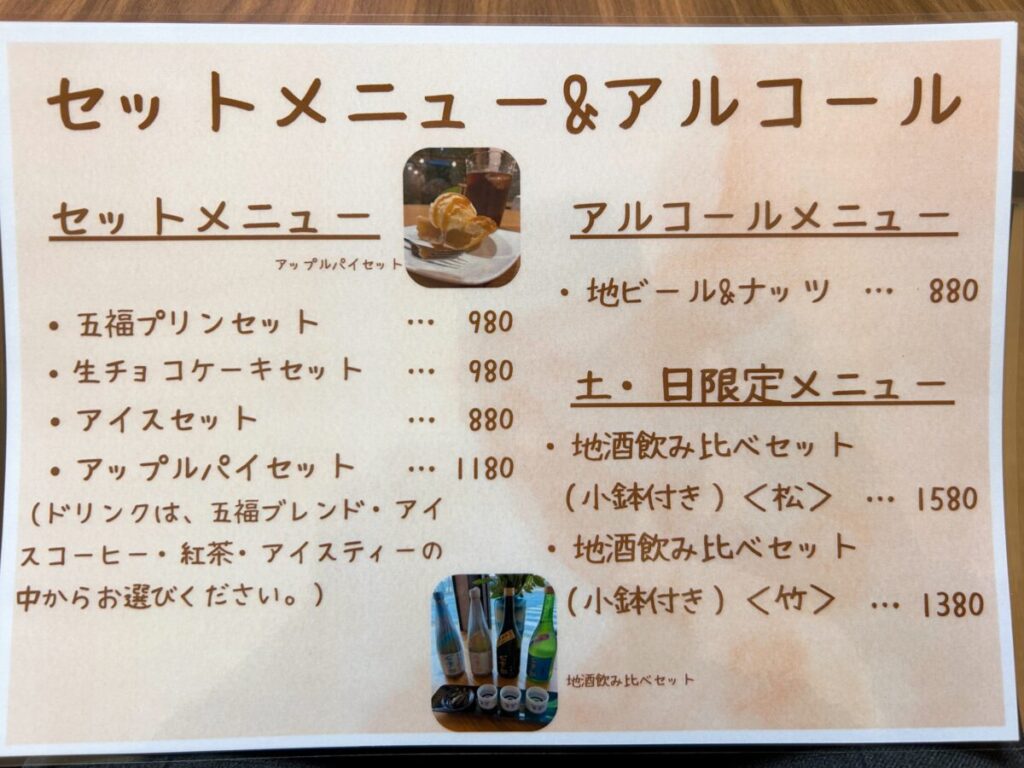 セットメニュー&アルコール
セットメニュー
アップルパイセット
・五福プリンセット … 980
・生チョコケーキセット … 980
・アイスセット … 880
・アップルパイセット … 1180
(ドリンクは、五福ブレンド・アイ
スコーヒー・紅茶・アイスティーの
中からお選びください。)
アルコールメニュー
・地ビール&ナッツ … 880
土・日限定メニュー
・地酒飲み比べセット
(小鉢付き)＜松＞ … 1580
・地酒飲み比べセット
(小鉢付き)＜竹＞ … 1380
地酒飲み比べセット